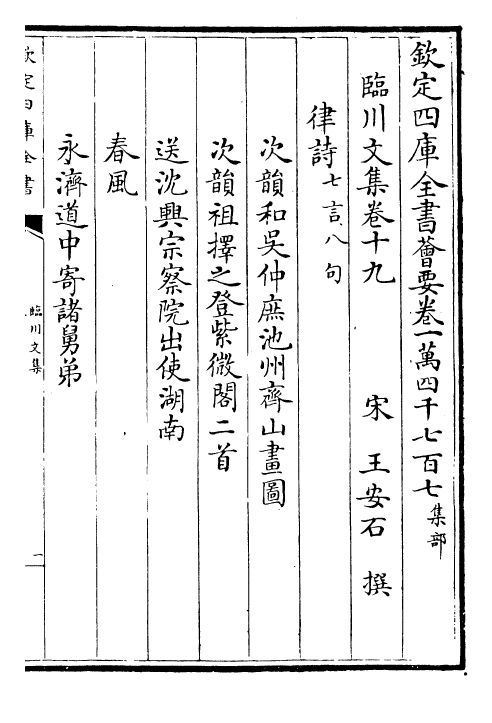 欽定四庫全書薈要卷一萬四千七百七集部
臨川文集卷十九 宋 王安石 撰
律詩七言八句
次韻和吳仲庶池州齊山畫圖
次韻祖擇之登紫微閣二首
送沈興宗察院出使湖南
春風
永濟道中寄諸舅弟
欽定四庫全書
臨川文集
一